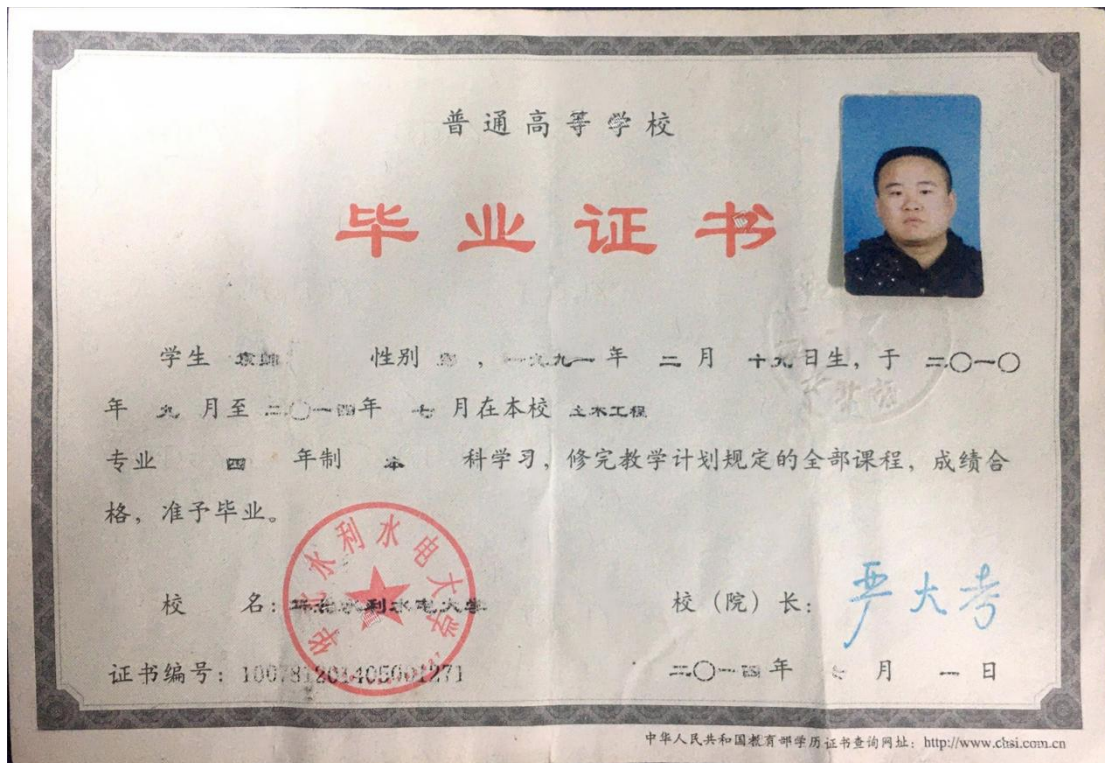 普通高等学校
毕业证书
学生 袁帅 性别 男，一九九一年 二月 十九日生，于 二〇一〇
年 九 月至 二〇一四年 七 月在本校 土木工程
专业 四 年制 本 科学习，修完教学计划规定的全部课程，成绩合
格，准予毕业。
华北水利水电大学
校 名：华北水利水电大学
校（院）长：严大考
证书编号：100781201405001271
二〇一四年 七 月 一 日
中华人民共和国教育部学历证书查询网址：http://www.chsi.com.cn